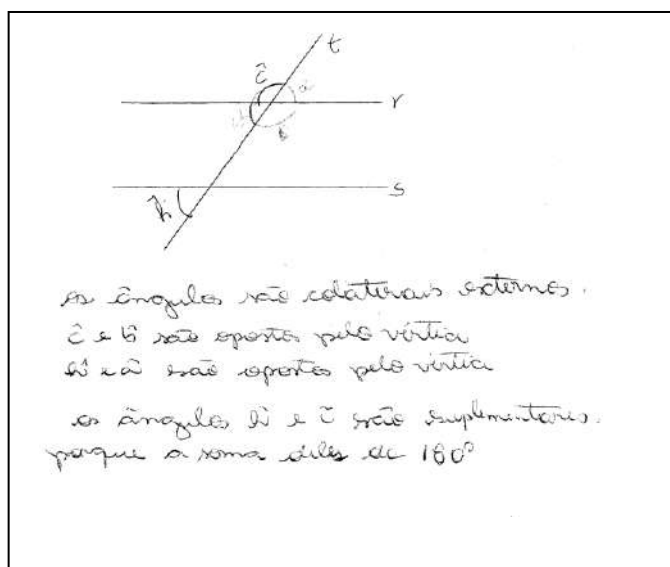 t
ĉ
a
r
d
b
ĥ
s
os ângulos são colaterais externos.
ĉ e b̂ são opostos pelo vértice
d̂ e â são opostos pelo vértice
os ângulos ĥ e ĉ são suplementares.
porque a soma deles dá 180°